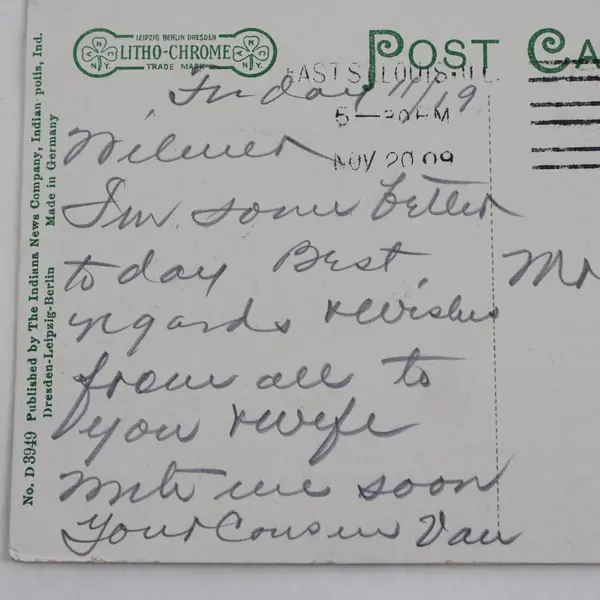 LEIPZIG BERLIN DRESDEN
LITHO-CHROME
TRADE MARK
ANC NY
ANC NY
POST CA
EAST ST LOUIS. ILL.
5 — 30 PM
NOV 20 09
Friday 11/19
Wilmer
I'm some better
today Best
regards & wishes
from all to
you & wife
Write me soon
Your Cousin Van
Mr
No. D 3949 Published by The Indiana News Company, Indianapolis, Ind.
Dresden-Leipzig-Berlin Made in Germany